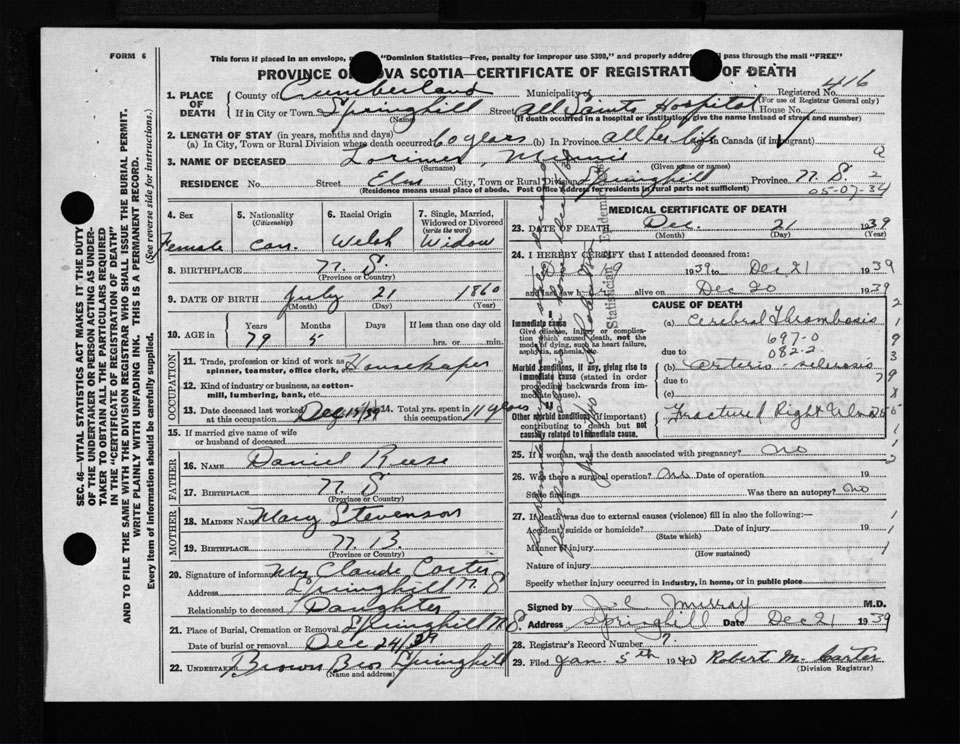 FORM 6
This form if placed in an envelope, "Dominion Statistics—Free, penalty for improper use $300," and properly addre pass through the mail "FREE"
PROVINCE O OVA SCOTIA—CERTIFICATE OF REGISTRAT OF DEATH
Registered No. 416
(For use of Registrar General only)
1. PLACE OF DEATH
County of Cumberland Municipality of
If in City or Town Springhill Street All Saints Hospital House No.
(Name) (If death occurred in a hospital or institution, give the name instead of street and number)
2. LENGTH OF STAY (in years, months and days)
(a) In City, Town or Rural Division where death occurred 60 years (b) In Province all her life in Canada (if immigrant)
3. NAME OF DECEASED Lorimer, Minnie
(Surname) (Given name or names)
RESIDENCE No. Street Elm City, Town or Rural Division Springhill Province N. S. 2
(Residence means usual place of abode. Post Office Address for residents in rural parts not sufficient)
05-07-34
4. Sex Female
5. Nationality (Citizenship) Can.
6. Racial Origin Welsh
7. Single, Married, Widowed or Divorced (write the word) Widow
8. BIRTHPLACE N. S.
(Province or Country)
9. DATE OF BIRTH July 21 1860
(Month) (Day) (Year)
10. AGE in Years Months Days If less than one day old
79 5 hrs. or min.
OCCUPATION
11. Trade, profession or kind of work as spinner, teamster, office clerk, Housekeeper
12. Kind of industry or business, as cotton-mill, lumbering, bank, etc.
13. Date deceased last worked at this occupation Dec 19/39 14. Total yrs. spent in this occupation 11 years
15. If married give name of wife or husband of deceased
FATHER
16. NAME Daniel Reese
17. BIRTHPLACE N. S.
(Province or Country)
MOTHER
18. MAIDEN NAME Mary Stevenson
19. BIRTHPLACE N. B.
(Province or Country)
20. Signature of informant Mrs Claude Carter
Address Springhill N. S
Relationship to deceased Daughter
21. Place of Burial, Cremation or Removal Springhill N. S.
Date of burial or removal Dec 24/39
22. UNDERTAKER Brown Bros Springhill
(Name and address)
MEDICAL CERTIFICATE OF DEATH
23. DATE OF DEATH Dec. 21 1939
(Month) (Day) (Year)
24. I HEREBY CERTIFY that I attended deceased from:
19 1939 to Dec 21 1939
and last saw h alive on Dec 20 1939
CAUSE OF DEATH
I
Immediate cause
Give disease, injury or complication which caused death, not the mode of dying, such as heart failure, asphyxia, asthenia, etc.
(a) Cerebral Thrombosis
697-0
due to 082-2
Morbid conditions, if any, giving rise to immediate cause (stated in order proceeding backwards from immediate cause).
(b) Arterio-sclerosis
due to
(c)
II
Other morbid conditions (if important) contributing to death but not causally related to immediate cause.
Fractured Right Ulna
25. If a woman, was the death associated with pregnancy? no
26. Was there a surgical operation? Date of operation 19
State findings Was there an autopsy? no
27. If death was due to external causes (violence) fill in also the following:—
Accident, suicide or homicide? Date of injury 19
(State which)
Manner of injury
(How sustained)
Nature of injury
Specify whether injury occurred in industry, in home, or in public place
Signed by J. C. Murray M.D.
Address Springhill Date Dec 21 1939
28. Registrar's Record Number
29. Filed Jan. 5th 1940 Robert M. Carter
(Division Registrar)
SEC. 46—VITAL STATISTICS ACT MAKES IT THE DUTY OF THE UNDERTAKER OR PERSON ACTING AS UNDERTAKER TO OBTAIN ALL THE PARTICULARS REQUIRED IN THE "CERTIFICATE OF REGISTRATION OF DEATH"
AND TO FILE THE SAME WITH THE DIVISION REGISTRAR WHO SHALL ISSUE THE BURIAL PERMIT.
WRITE PLAINLY WITH UNFADING INK. THIS IS A PERMANENT RECORD.
Every item of information should be carefully supplied. (See reverse side for instructions.)
Statistician